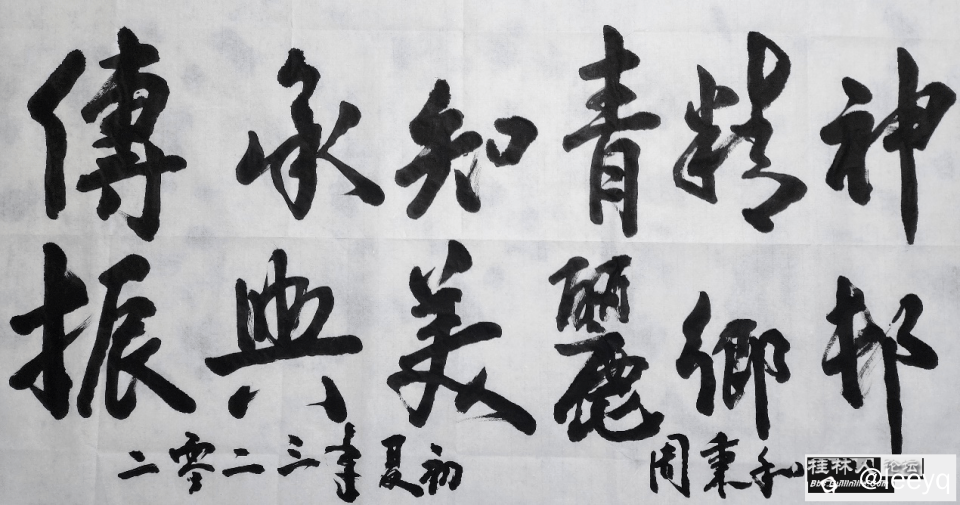 傳承知青精神
振興美麗鄉邨
二零二三年夏初 周秉和
桂林人论坛
@leeyq